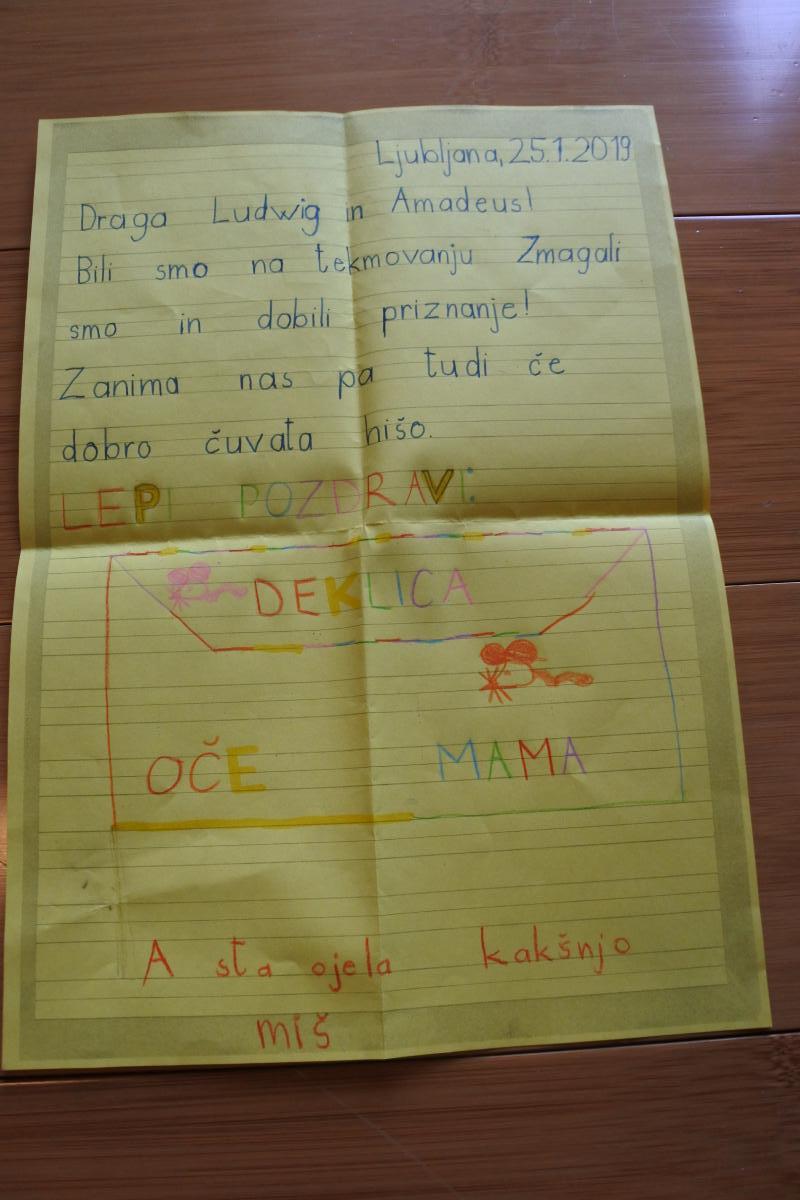 Ljubljana, 25.1.2019
Draga Ludwig in Amadeus!
Bili smo na tekmovanju Zmagali
smo in dobili priznanje!
Zanima nas pa tudi če
dobro čuvata hišo.
LEPI POZDRAVI:
DEKLICA
OČE MAMA
A sta ojela kakšnjo
miš